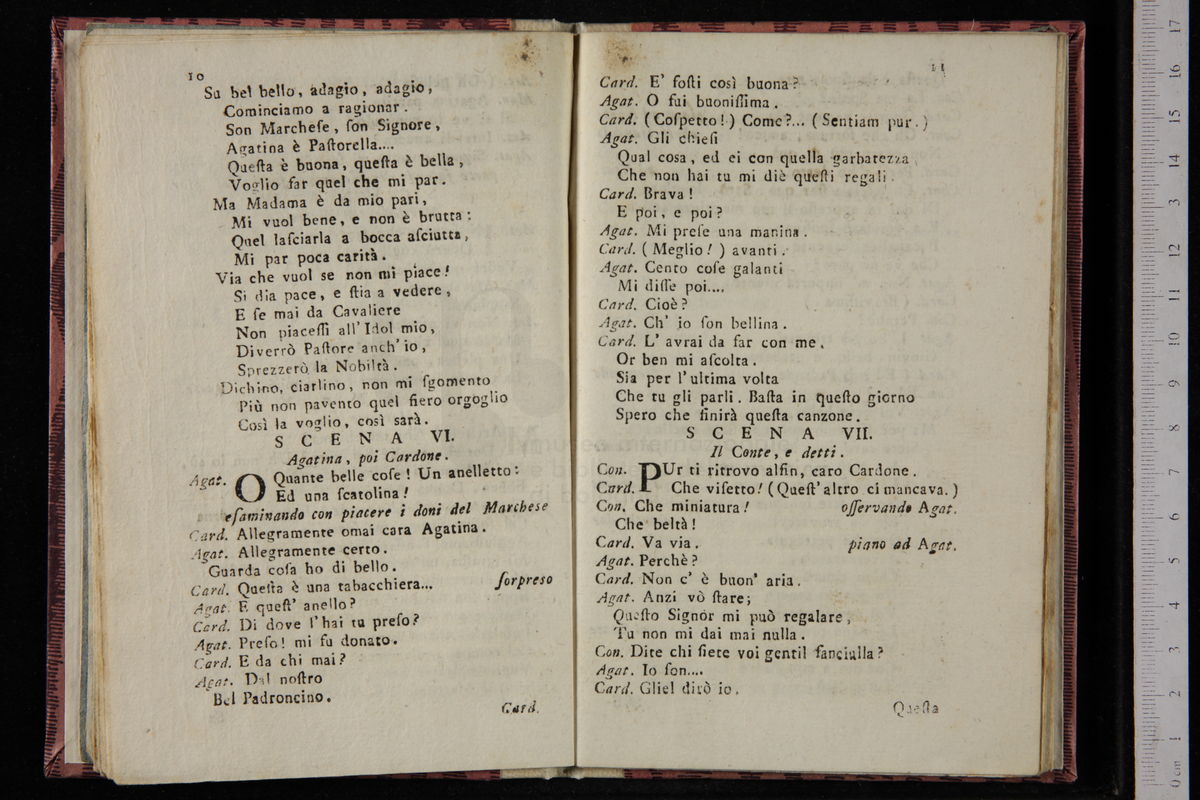 10
Su bel bello, adagio, adagio,
Cominciamo a ragionar.
Son Marcheſe, ſon Signore,
Agatina è Paſtorella....
Queſta è buona, queſta è bella,
Voglio far quel che mi par.
Ma Madama è da mio pari,
Mi vuol bene, e non è brutta:
Quel laſciarla a bocca aſciutta,
Mi par poca carità.
Via che vuol se non mi piace!
Si dia pace, e ſtia a vedere,
E ſe mai da Cavaliere
Non piaceſſi all' Idol mio,
Diverrò Paſtore anch' io,
Sprezzerò la Nobiltà.
Dichino, ciarlino, non mi ſgomento
Più non pavento quel fiero orgoglio
Così la voglio, così sarà.
SCENA VI.
Agatina, poi Cardone.
Agat. O Quante belle coſe! Un anelletto:
Ed una ſcatolina!
eſaminando con piacere i doni del Marchese
Card. Allegramente omai cara Agatina.
Agat. Allegramente certo.
Guarda coſa ho di bello.
Card. Queſta è una tabacchiera... ſorpreso
Agat. E queſt' anello?
Card. Di dove l'hai tu preſo?
Agat. Preſo! mi fu donato.
Card. E da chi mai?
Agat. Dal noſtro
Bel Padroncino.
Card.
11
Card. E' foſti così buona?
Agat. O fui buoniſſima.
Card. (Coſpetto!) Come?... (Sentiam pur.)
Agat. Gli chieſi
Qual cosa, ed ei con quella garbatezza
Che non hai tu mi diè queſti regali.
Card. Brava!
E poi, e poi?
Agat. Mi preſe una manina.
Card. (Meglio!) avanti.
Agat. Cento coſe galanti
Mi diſſe poi....
Card. Cioè?
Agat. Ch' io ſon bellina.
Card. L' avrai da far con me.
Or ben mi aſcolta.
Sia per l'ultima volta
Che tu gli parli. Baſta in queſto giorno
Spero che finirà queſta canzone.
SCENA VII.
Il Conte, e detti.
Con. PUr ti ritrovo alfin, caro Cardone.
Card. Che viſetto! (Queſt' altro ci mancava.)
Con. Che miniatura! oſſervando Agat.
Che beltà!
Card. Va via. piano ad Agat.
Agat. Perchè?
Card. Non c' è buon' aria.
Agat. Anzi vò ſtare;
Queſto Signor mi può regalare,
Tu non mi dai mai nulla.
Con. Dite chi ſiete voi gentil fanciulla?
Agat. Io ſon....
Card. Gliel dirò io.
Queſta